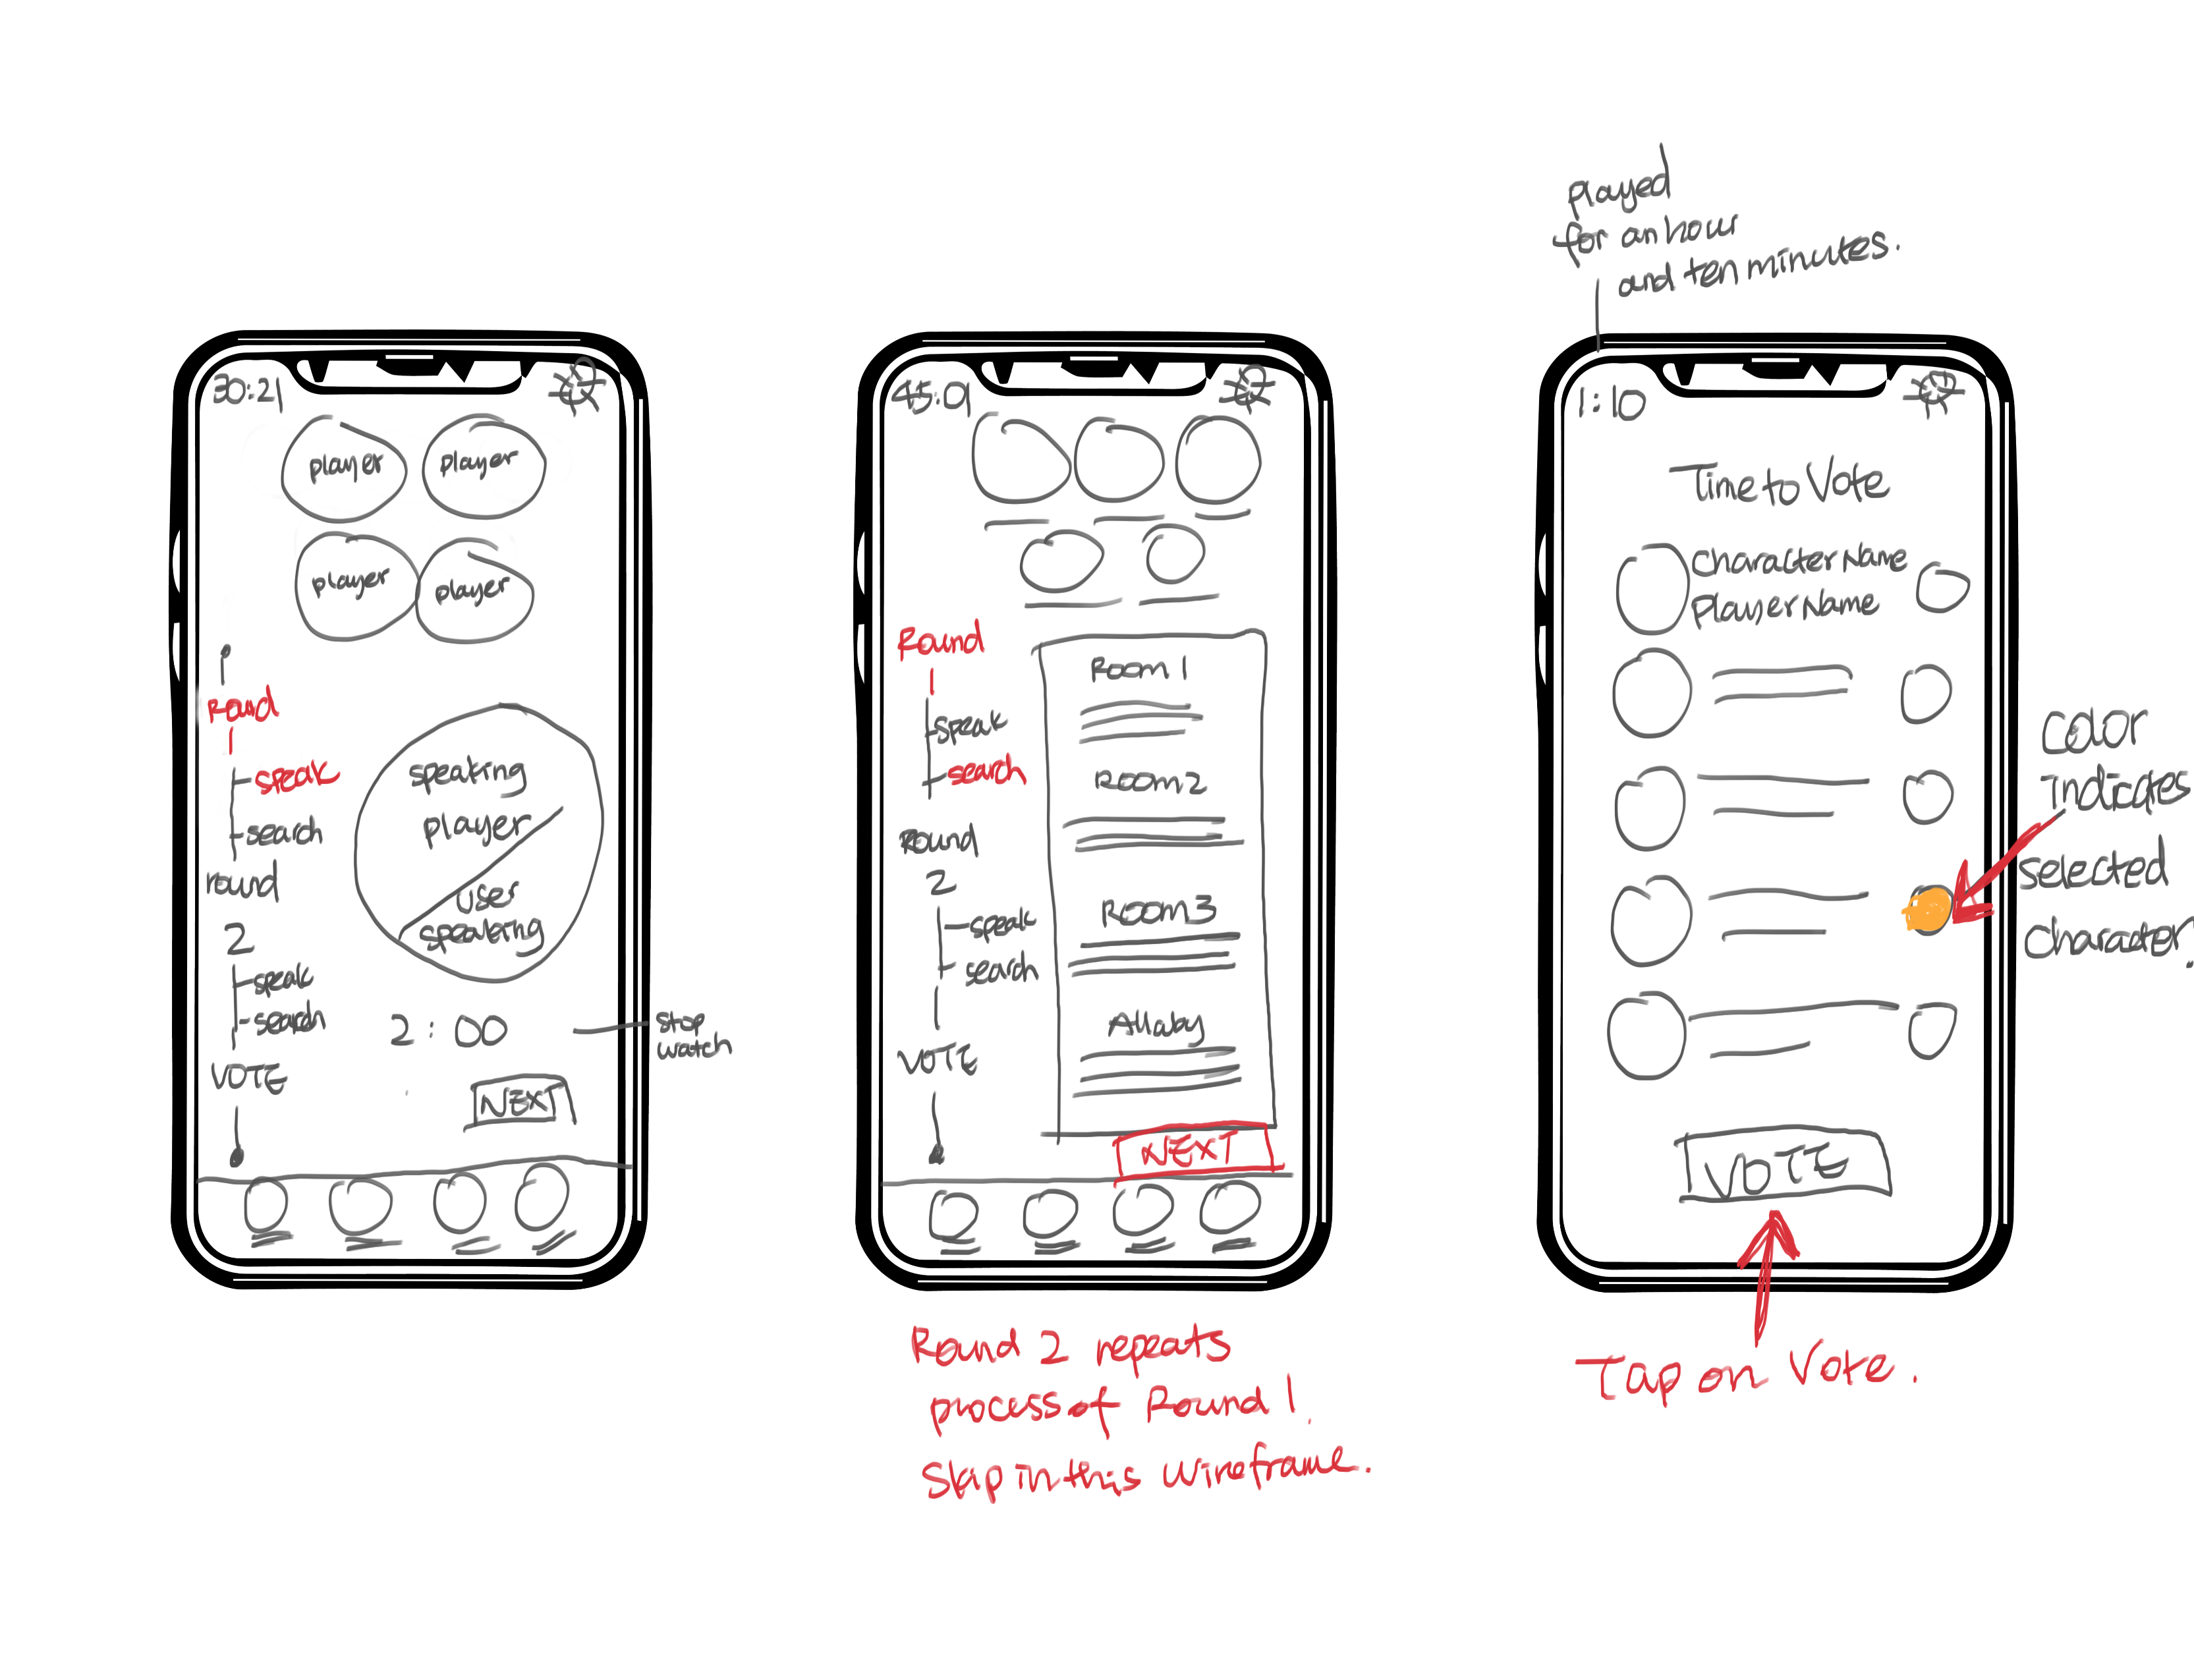 30:21
player player
player player
Round
speak
search
round
2
speak
search
VOTE
speaking
player
user
speaking
2:00
stop
watch
NEXT
45:01
Round
speak
search
Round
2
speak
search
VOTE
Room 1
Room 2
Room 3
NEXT
Round 2 repeats
process of Round 1.
Skip in this wireframe.
played
for an hour
and ten minutes.
1:10
Time to Vote
Character Name
Player Name
Color
Indicates
selected
character.
VOTE
Tap on Vote.